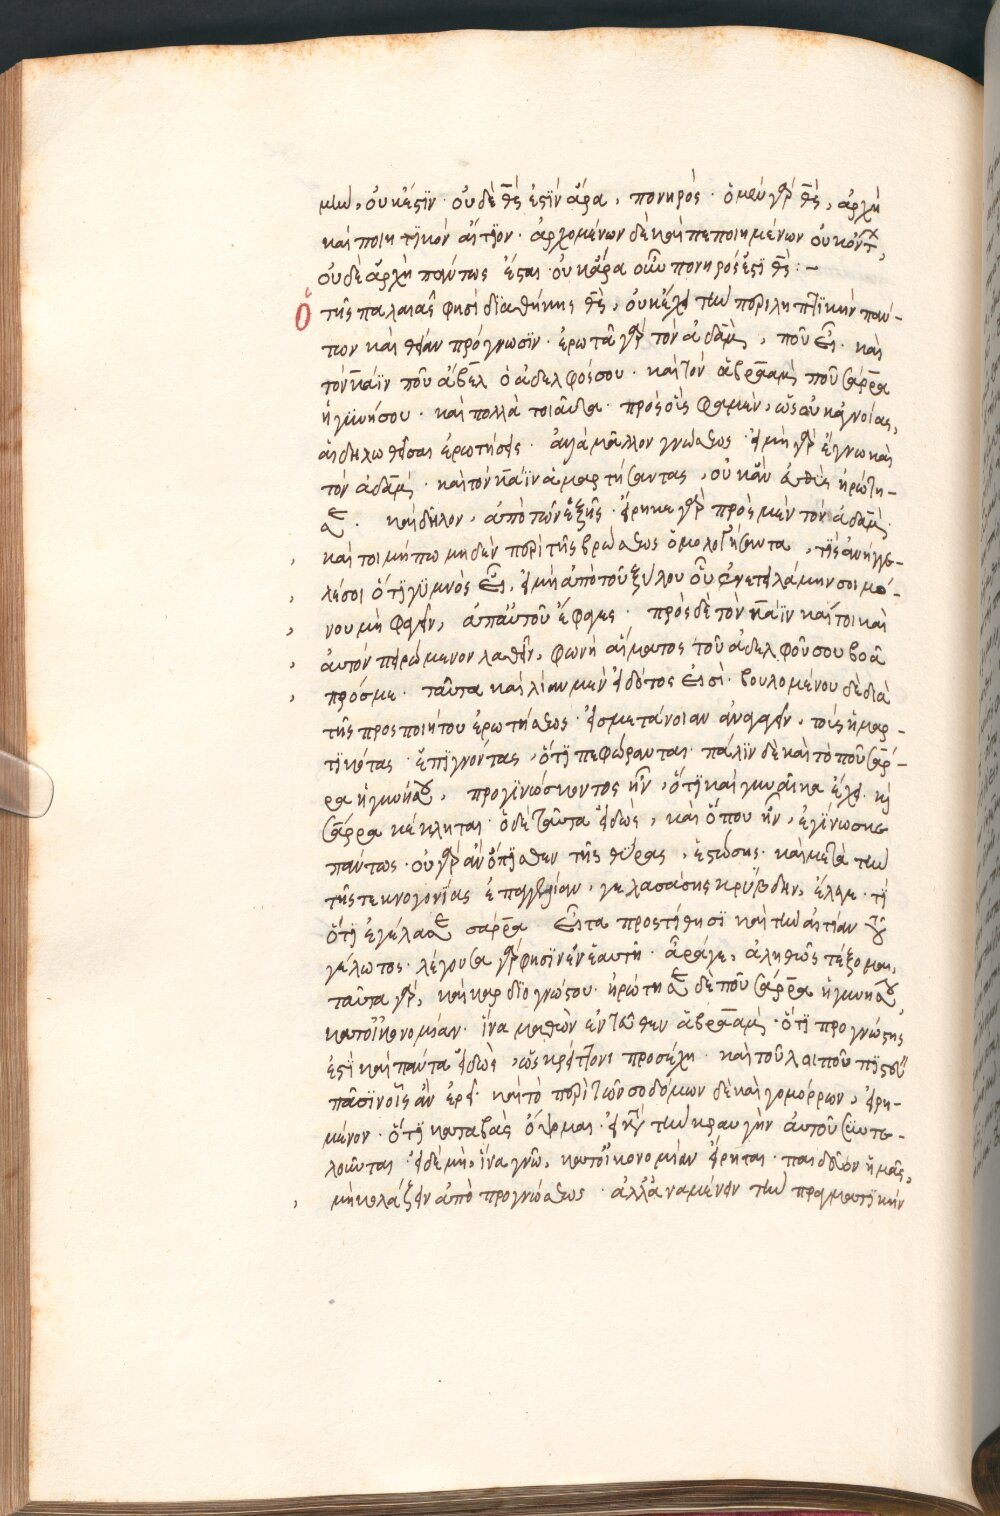 μιῶ, οὐκ ἔστϊν· οὐδὲ θς̅ ἐστὶν ἄρα, πονηρός· ὁ μὲν γὰρ θς̅, ἀρχὴ
καὶ ποιητϊκὸν αἴτϊον· ἀρχομένων δὲ καὶ πεποιημένων οὐκ ὄντ,
οὐδὲ ἀρχὴ πάντως ἔσται· οὐκ ἄρα οὖν πονηρός ἐστι θς̅ : –
Ὁ τῆς παλαιᾶς φησὶ δϊαθήκης θς̅, οὐκ ἔχει τὴν περιληπτϊκὴν πάν-
των καὶ θείαν πρόγνωσϊν· ἐρωτᾶ γὰρ τὸν ἀδὰμ, ποῦ εἶ· καὶ
τὸν κάϊν ποῦ ἄβελ ὁ ἀδελφός σου· καὶ τὸν ἀβραὰμ ποῦ σάρρα
ἡ γυνή σου· καὶ πολλὰ τοιαῦτα· πρὸς οὓς φαμὲν, ὡς οὐκ ἀγνοίας,
αἱ δηλωθεῖσαι ἐρωτήσεις· ἀλλὰ μᾶλλον γνώσεως· εἰ μὴ γὰρ ἔγνω καὶ
τὸν ἀδὰμ· καὶ τὸν κάϊν ἁμαρτήσαντας, οὐκ ἂν αὐθις ἠρώτη-
σε· καὶ δῆλον, ἀπὸ τῶν ἑξῆς· εἴρηκε γὰρ πρὸς μὲν τὸν ἀδὰμ·
καί τοι μήπω μηδὲν περὶ τῆς βρώσεως ὁμολογήσαντα, τίς ἀνήγγε-
λέ σοι ὅτϊ γϋμνὸς εἶ, εἰ μὴ ἀπὸ τοῦ ξύλου οὗ ἐνετειλάμην σοι μό-
νου μὴ φαγεῖν, ἀπ' αὐτοῦ ἔφαγες· πρὸς δὲ τὸν κάϊν καί τοι καὶ
αὐτὸν πειρώμενον λαθεῖν, φωνὴ αἵματος τοῦ ἀδελφοῦ σου βοᾶ
πρός με· ταῦτα καὶ λίαν μὲν εἰδότος εἰσὶ· βουλομένου δὲ διὰ
τῆς προσποιήτου ἐρωτήσεως· εἰς μετάνοιαν ἀναγαγεῖν, τοὺς ἡμαρ-
τϊκότας· ἐπϊγνόντας, ὅτϊ πεφώρανται· πάλϊν δὲ καὶ τὸ ποῦ σάρ-
ρα ἡ γυνή σου, προγϊνώσκοντος ἦν, ὅτϊ καὶ γυναῖκα ἔχει· κὴ
σάρρα κέκληται· ὁ δὲ ταῦτα εἰδὼς, καὶ ὅπου ἦν, ἐγίνωσκε
πάντως· οὐ γὰρ ἂν ὄπϊσθεν τῆς θύρας, ἑστώσης· καὶ μετὰ τὴν
τῆς τεκνογονίας ἐπαγγελίαν, γελασάσης κρύβδην, ἔλεγε· τί
ὅτϊ ἐγέλασε σάρρα εἶτα προστίθησϊ καὶ τὴν αἰτίαν τοῦ
γέλωτος· λέγουσα γὰρ φησὶν ἐν ἑαυτῆ· ἆρά γε, ἀληθῶς τέξομαι,
ταῦτα γὰρ, καὶ καρδϊογνώστου· ἠρώτησε δὲ ποῦ σάρρα ἡ γυνή σου,
κατ' οἰκονομίαν· ἵνα μαθὼν ἐντεῦθεν ἀβραὰμ· ὅτϊ προγνώστης
ἐστὶ καὶ πάντα εἰδὼς, ὡς κρείττονι προσέχη· καὶ τοῦ λοιποῦ πϊστεύη
πᾶσϊν οἷς ἂν ἐρεῖ· καὶ τὸ περὶ τῶν σοδόμων δὲ καὶ γομόρρων, εἰρη-
μένον· ὅτϊ καταβὰς ὄψομαι· εἰ κατὰ τὴν κραυγὴν αὐτοῦ συντε-
λοῦνται· εἰ δὲ μὴ, ἵνα γνῶ, κατ' οἰκονομίαν εἴρηται· παιδεῦον ἡμᾶς,
μὴ κολάζειν ἀπὸ προγνώσεως· ἀλλ' ἀναμένειν τὴν πραγματϊκὴν